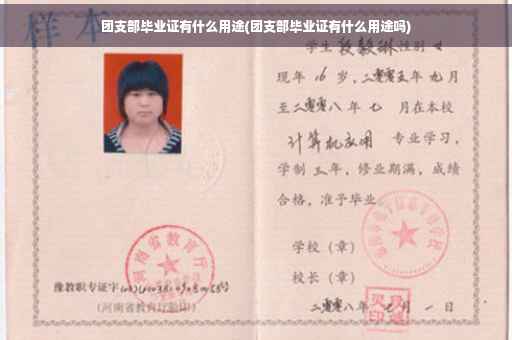 团支部毕业证有什么用途(团支部毕业证有什么用途吗)
样本
学生 段毅琳 性别 女
现年 16 岁，二零零五年 九月
至二零零八年 七 月在本校
计算机应用 专业学习，
学制 三 年，修业期满，成绩
合格，准予毕业
学校（章）
校长（章）
二零零八年 七 月 一 日
河南省教育厅
豫教职专证字
(河南省教育厅验印)